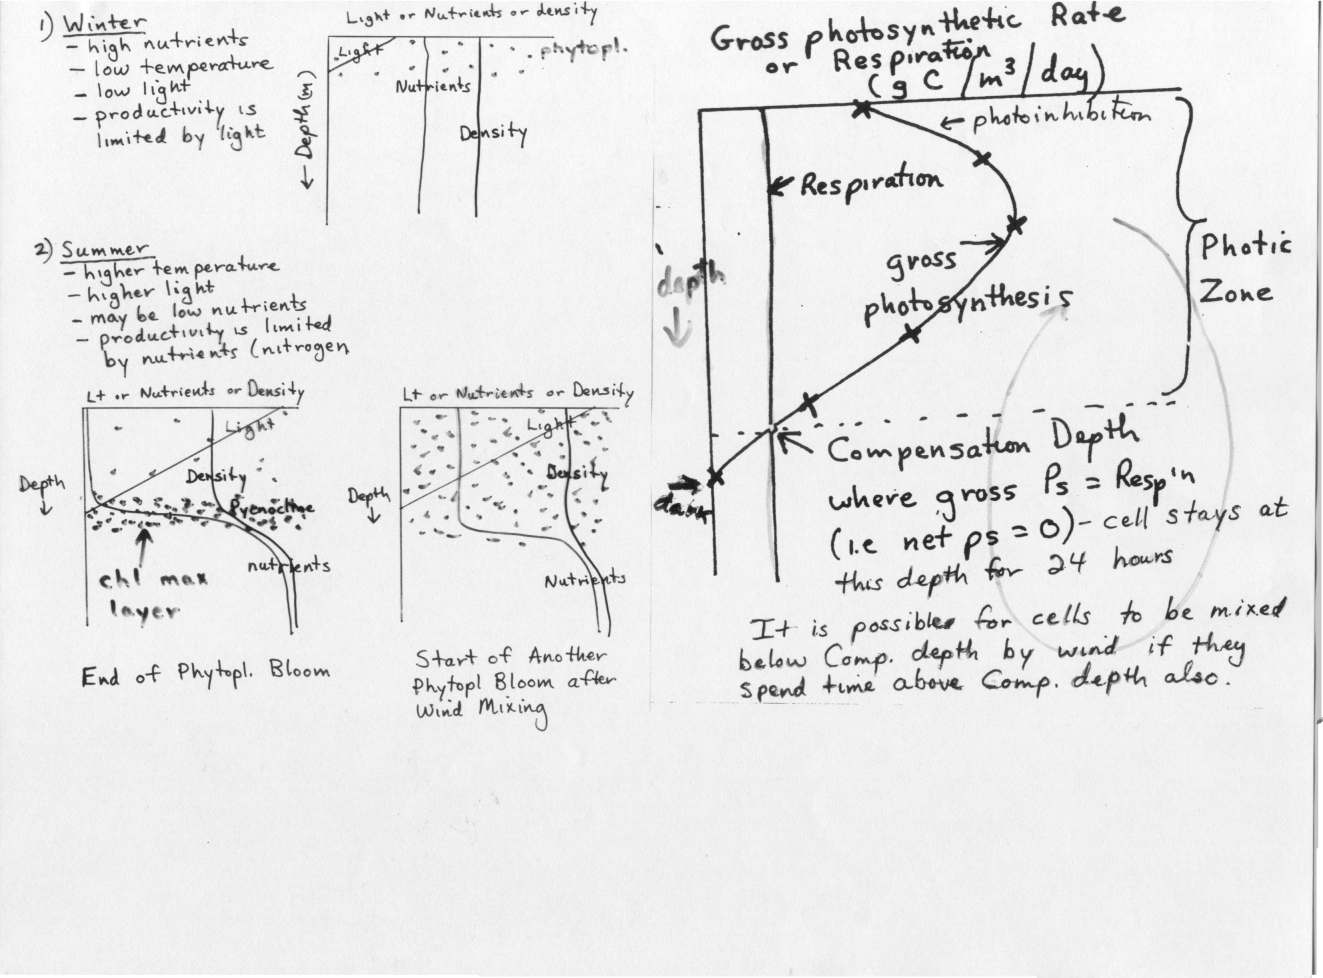 1) Winter
- high nutrients
- low temperature
- low light
- productivity is
limited by light
Light or Nutrients or density
Light
phytopl.
Nutrients
Density
← Depth (m)
2) Summer
- higher temperature
- higher light
- may be low nutrients
- productivity is limited
by nutrients (nitrogen
Lt or Nutrients or Density
Light
Density
Depth
↓
Pycnocline
nutrients
chl max
layer
End of Phytopl. Bloom
Lt or Nutrients or Density
Light
Density
Depth
↓
Nutrients
Start of Another
Phytopl Bloom after
Wind Mixing
Gross photosynthetic Rate
or Respiration
(g C /m³/day)
← photoinhibition
← Respiration
depth
↓
gross →
photosynthesis
Photic
Zone
dark
Compensation Depth
where gross Ps = Resp'n
(i.e net ps = 0) - cell stays at
this depth for 24 hours
It is possible for cells to be mixed
below Comp. depth by wind if they
spend time above Comp. depth also.